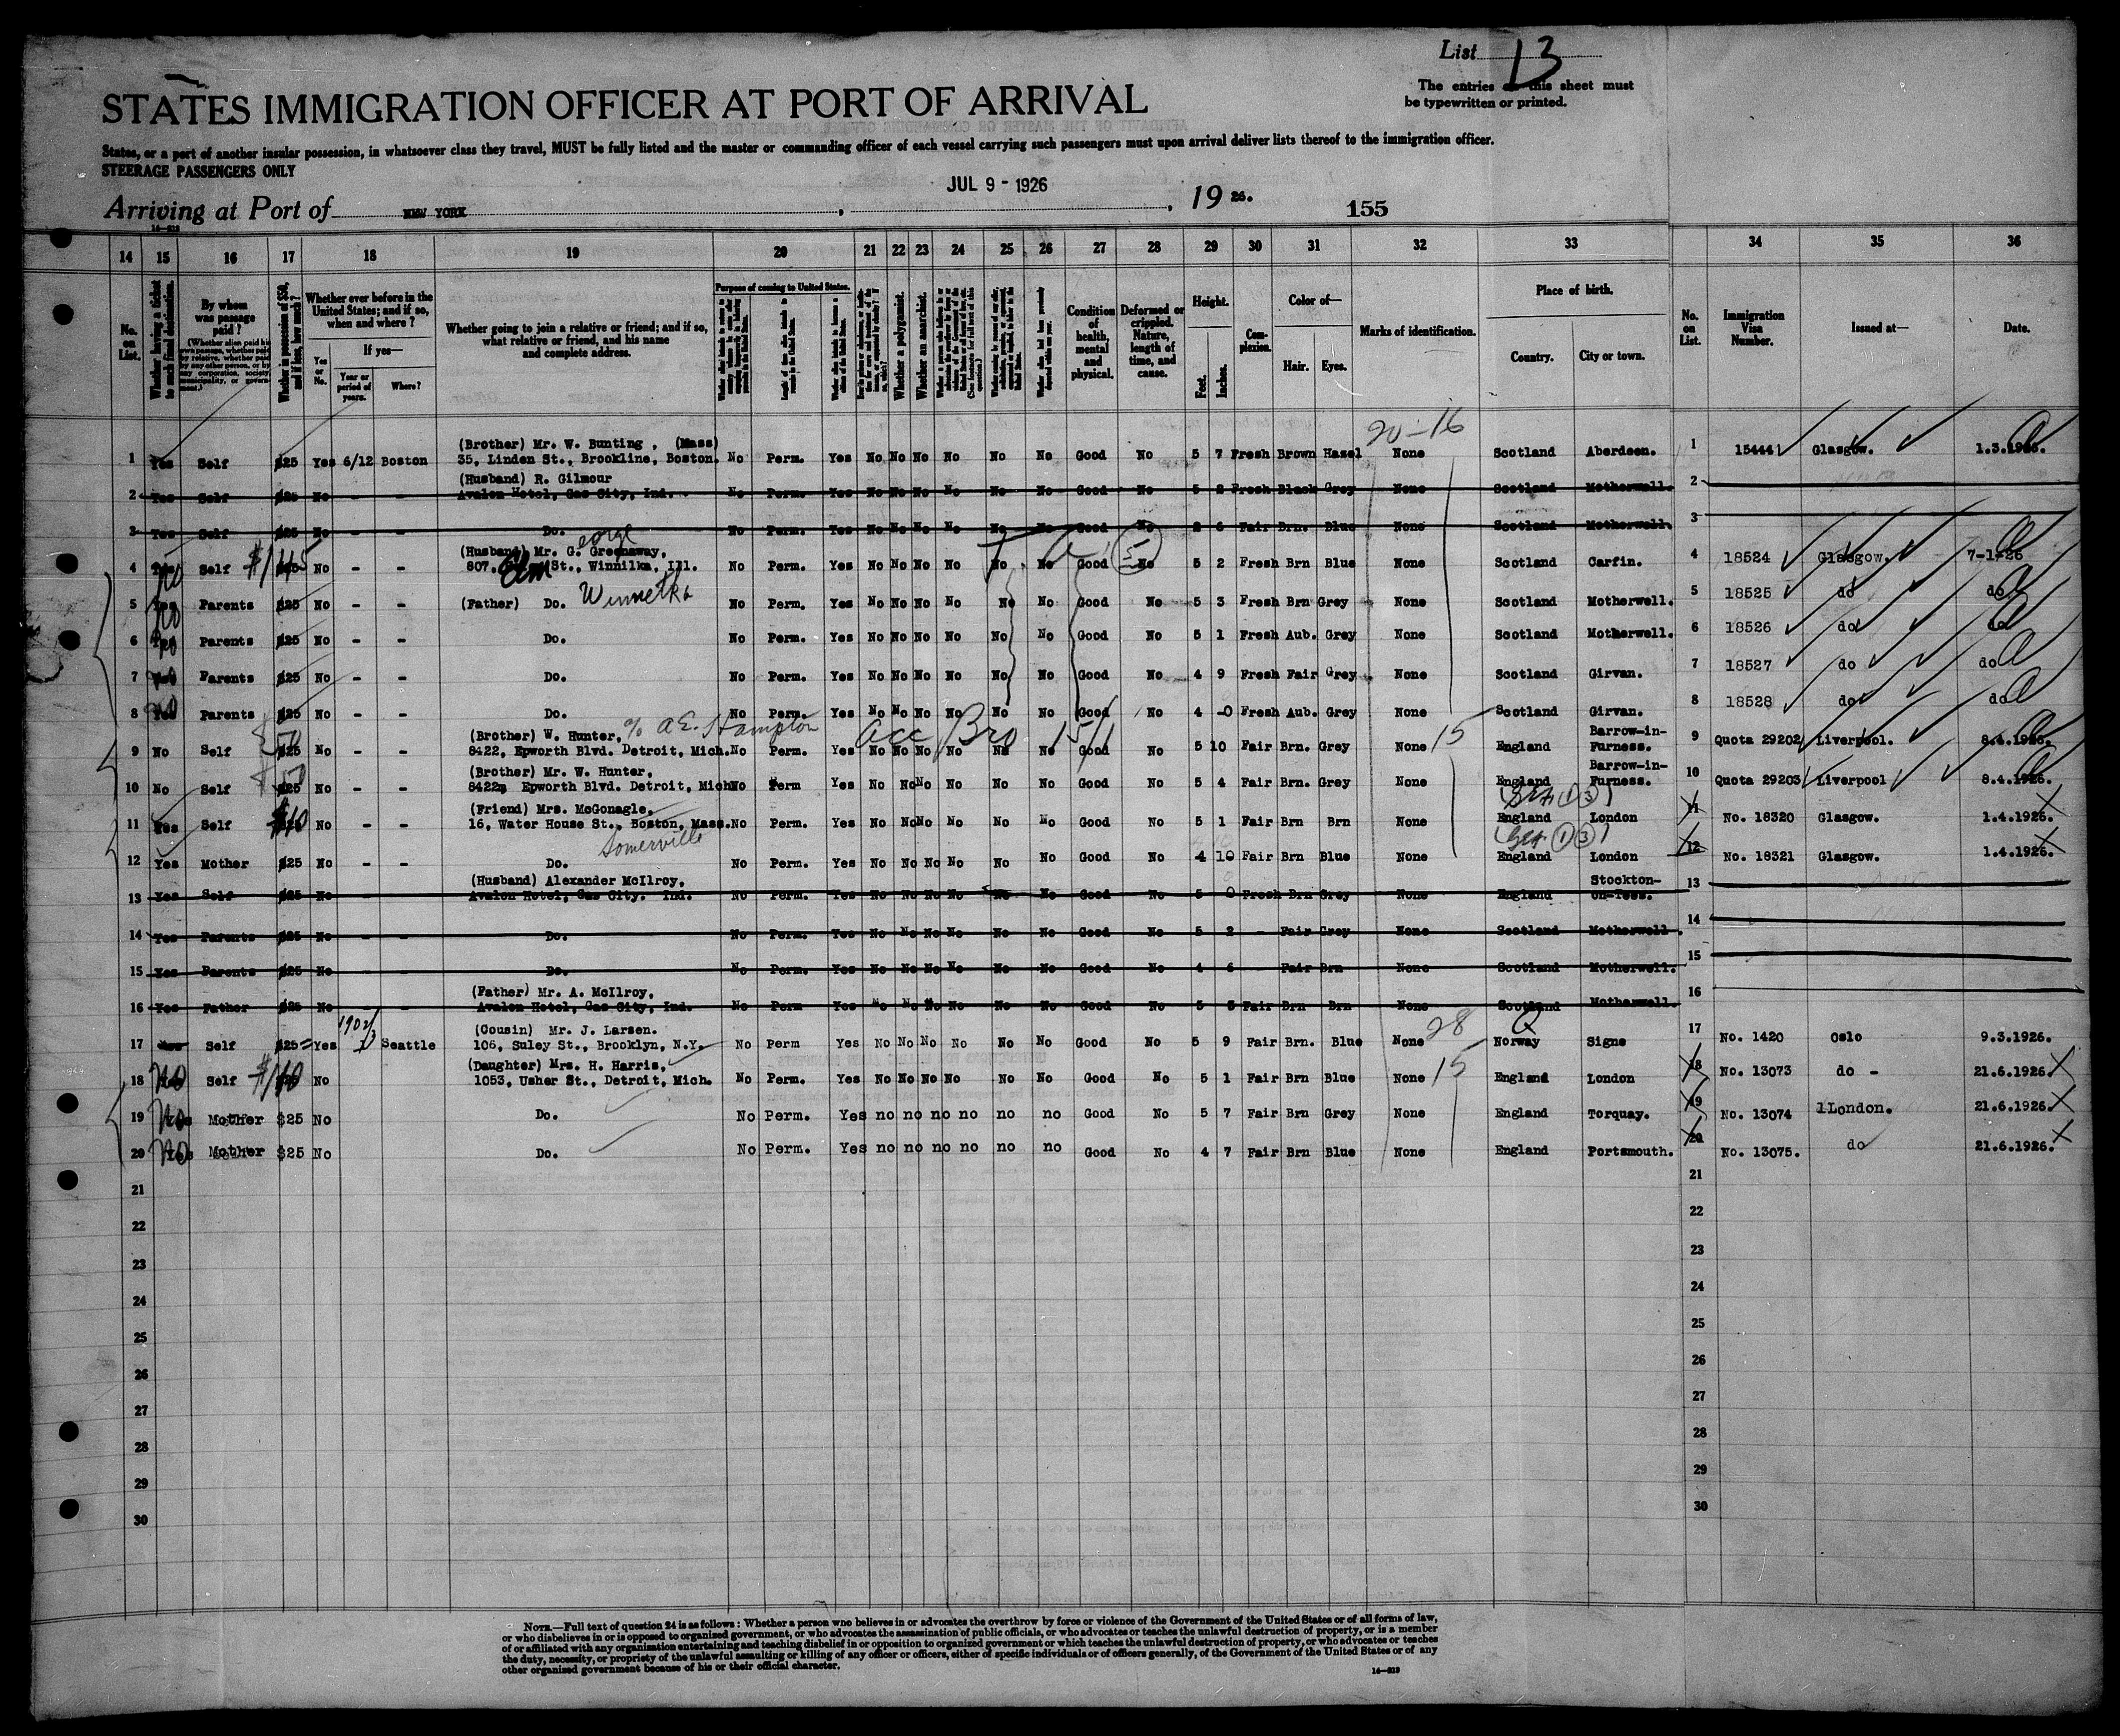 List 13
The entries on this sheet must
be typewritten or printed.
STATES IMMIGRATION OFFICER AT PORT OF ARRIVAL
States, or a port of another insular possession, in whatsoever class they travel, MUST be fully listed and the master or commanding officer of each vessel carrying such passengers must upon arrival deliver lists thereof to the immigration officer.
STEERAGE PASSENGERS ONLY
JUL 9 - 1926
Arriving at Port of NEW YORK , , 19 26. 155
14 15 16 17 18 19 20 21 22 23 24 25 26 27 28 29 30 31 32 33 34 35 36
No. on List.
Whether having a ticket to such final destination.
By whom was passage paid?
(Whether alien paid his own passage, whether paid by relative, whether paid by any other person, or by any corporation, society, municipality, or government.)
Whether in possession of $50, and if less, how much?
Whether ever before in the United States; and if so, when and where?
Yes or No.
If yes—
Year or period of years.
Where?
Whether going to join a relative or friend; and if so, what relative or friend, and his name and complete address.
Purpose of coming to United States.
Whether a polygamist.
Whether an anarchist.
Condition of health, mental and physical.
Deformed or crippled. Nature, length of time, and cause.
Height.
Feet. Inches.
Complexion.
Color of—
Hair. Eyes.
Marks of identification.
Place of birth.
Country. City or town.
No. on List.
Immigration Visa Number.
Issued at—
Date.
20-16
(Brother) Mr. W. Bunting , (Mass)
1 Yes Self $25 Yes 6/12 Boston 35, Linden St., Brookline, Boston. No Perm. Yes No No No No No No Good No 5 7 Fresh Brown Hazel None Scotland Aberdeen. 1 15444 Glasgow. 1.3.1926.
(Husband) R. Gilmour
2 Yes Self $25 No - - Avalon Hotel, Gas City, Ind. No Perm. Yes No No No No No No Good No 5 2 Fresh Black Grey None Scotland Motherwell. 2
3 Yes Self $25 No - - Do. No Perm. Yes No No No No No No Good No 2 6 Fair Brn. Blue None Scotland Motherwell. 3
eorge
(Husband) Mr. G. Greenaway,
4 No Self $145 No - - 807, Elm St., Winnilka, Ill. No Perm. Yes No No No No No No Good No 5 2 Fresh Brn Blue None Scotland Carfin. 4 18524 Glasgow. 7-1-26
Winnetka
5 No Parents $25 No - - (Father) Do. No Perm. Yes No No No No No No Good No 5 3 Fresh Brn Grey None Scotland Motherwell. 5 18525 do do
6 No Parents $25 No - - Do. No Perm. Yes No No No No No No Good No 5 1 Fresh Aub. Grey None Scotland Motherwell. 6 18526 do do
7 No Parents $25 No - - Do. No Perm. Yes No No No No No No Good No 4 9 Fresh Fair Grey None Scotland Girvan. 7 18527 do do
8 No Parents $25 No - - Do. No Perm. Yes No No No No No No Good No 4 -0 Fresh Aub. Grey None Scotland Girvan. 8 18528 do do
(Brother) W. Hunter, % A.E. Hampton acc Bro 15/1
9 No Self $50 No - - 8422, Epworth Blvd. Detroit, Mich. No Perm. Yes No No No No No No Good No 5 10 Fair Brn. Grey None 15 England Barrow-in-Furness. 9 Quota 29202 Liverpool. 8.4.1926.
(Brother) Mr. W. Hunter,
10 No Self $50 No - - 8422, Epworth Blvd. Detroit, Mich No Perm Yes No No No No No No Good No 5 4 Fair Brn. Grey None England Barrow-in-Furness. 10 Quota 29203 Liverpool 8.4.1926.
(Friend) Mrs. McGonagle,
11 Yes Self $40 No - - 16, Water House St., Boston, Mass. No Perm. Yes No No No No No No Good No 5 1 Fair Brn Brn None England London 11 No. 18320 Glasgow. 1.4.1926.
Somerville
12 Yes Mother $25 No - - Do. No Perm. Yes No No No No No No Good No 4 10 Fair Brn Blue None England London 12 No. 18321 Glasgow. 1.4.1926.
(Husband) Alexander McIlroy,
13 Yes Self $25 No - - Avalon Hotel, Gas City. Ind. No Perm. Yes No No No No No No Good No 5 0 Fresh Brn Grey None England Stockton-on-Tees. 13
14 Yes Parents $25 No - - Do. No Perm. Yes No No No No No No Good No 5 2 - Fair Grey None Scotland Motherwell. 14
15 Yes Parents $25 No - - Do. No Perm. Yes No No No No No No Good No 4 6 Fair Brn None Scotland Motherwell. 15
(Father) Mr. A. McIlroy,
16 Yes Father $25 No - - Avalon Hotel, Gas City, Ind. No Perm Yes No No No No No No Good No 5 5 Fair Brn Brn None Scotland Motherwell. 16
(Cousin) Mr. J. Larsen.
17 Self $25 Yes 1902/3 Seattle 106, Suley St., Brooklyn, N.Y. No Perm Yes No No No No No No Good No 5 9 Fair Brn. Blue None 28 Norway Signe 17 No. 1420 Oslo 9.3.1926.
(Daughter) Mrs. H. Harris,
18 No Self $140 No 1053, Usher St., Detroit, Mich. No Perm. Yes No No No No No No Good No 5 1 Fair Brn Blue None 15 England London 18 No. 13073 do - 21.6.1926.
19 No Mother $25 No Do. No Perm. Yes no no no no no no Good No 5 7 Fair Brn Grey None England Torquay. 19 No. 13074 London. 21.6.1926.
20 No Mother $25 No Do. No Perm. Yes no no no no no no Good No 4 7 Fair Brn Blue None England Portsmouth. 20 No. 13075. do 21.6.1926.
21 21
22 22
23 23
24 24
25 25
26 26
27 27
28 28
29 29
30 30
NOTE.—Full text of question 24 is as follows: Whether a person who believes in or advocates the overthrow by force or violence of the Government of the United States or of all forms of law,
or who disbelieves in or is opposed to organized government, or who advocates the assassination of public officials, or who advocates or teaches the unlawful destruction of property, or is a member
of or affiliated with any organization entertaining and teaching disbelief in or opposition to organized government or which teaches the unlawful destruction of property, or who advocates or teaches
the duty, necessity, or propriety of the unlawful assaulting or killing of any officer or officers, either of specific individuals or of officers generally, of the Government of the United States or of any
other organized government because of his or their official character.